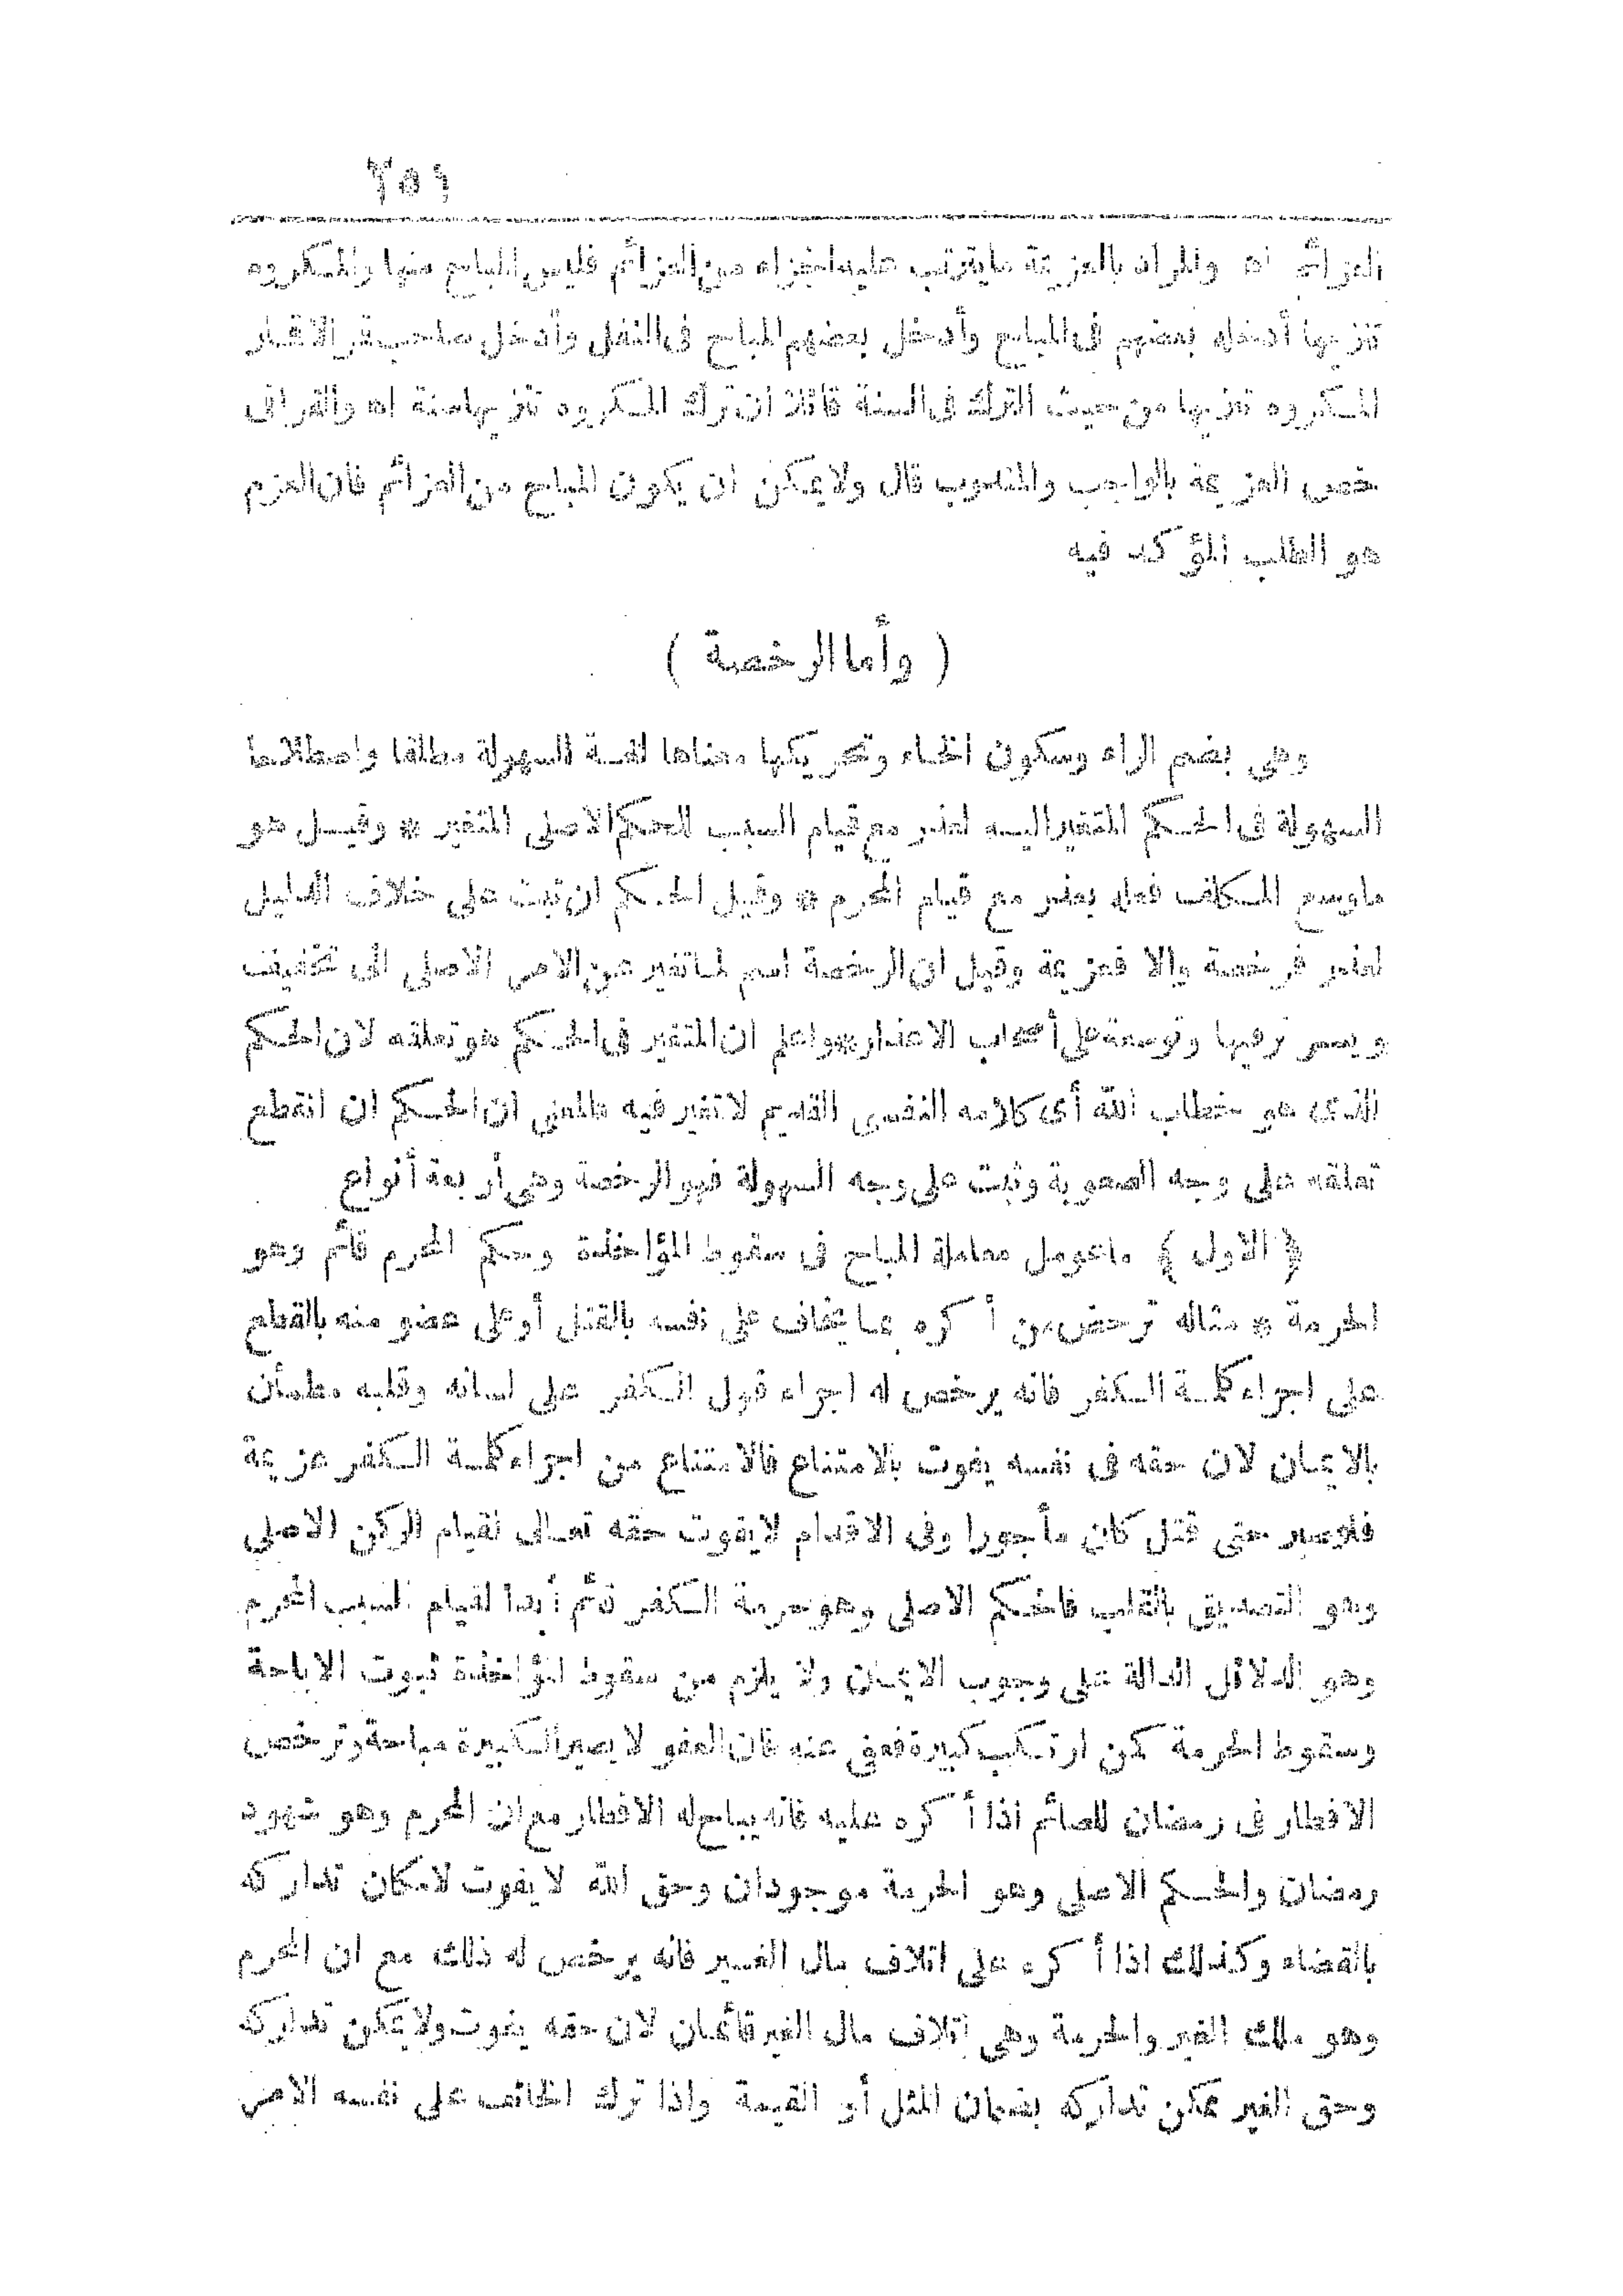 ٢٥٩
العزائم اه والمراد بالعزيمة ما يترتب عليها جزاء من العزائم فليس المباح منها والمكروه
تنزيها أدخله بعضهم فى المباح وأدخل بعضهم المباح فى النفل وأدخل صاحب قر الاقمار
المكروه تنزيها من حيث الترك فى السنة قائلا ان ترك المكروه تنزيها سنة اه والقرافى
خص العزيمة بالواجب والمندوب قال ولا يمكن ان يكون المباح من العزائم فان العزم
هو الطلب المؤكد فيه
( وأما الرخصة )
وهى بضم الراء وسكون الخاء وتحريكها معناها لغة السهولة مطلقا واصطلاحا
السهولة فى الحكم المتغير اليه لعذر مع قيام السبب للحكم الاصلى المتغير * وقيل هو
ما وسع المكلف فعله بعذر مع قيام المحرم * وقيل الحكم ان ثبت على خلاف الدليل
لعذر فرخصة والا فعزيمة وقيل ان الرخصة اسم لما تغير عن الامر الاصلى الى تخفيف
ويسر ترفيها وتوسعة على أصحاب الاعذار * واعلم ان المتغير فى الحكم هو تعلقه لان الحكم
الذى هو خطاب الله أى كلامه النفسى القديم لا تغير فيه فالمعنى ان الحكم ان انقطع
تعلقه على وجه الصعوبة وثبت على وجه السهولة فهو الرخصة وهى أربعة أنواع
﴿ الاول ﴾ ما عومل معاملة المباح فى سقوط المؤاخذة وحكم المحرم قائم وهو
الحرمة * مثاله ترخص من أكره بما يخاف على نفسه بالقتل أو على عضو منه بالقطع
على اجراء كلمة الكفر فانه يرخص له اجراء قول الكفر على لسانه وقلبه مطمأن
بالايمان لان حقه فى نفسه يفوت بالامتناع فالامتناع من اجراء كلمة الكفر عزيمة
فلو صبر حتى قتل كان مأجورا وفى الاقدام لا يفوت حقه تعالى لقيام الركن الاصلى
وهو التصديق بالقلب فالحكم الاصلى وهو حرمة الكفر قائم أبدا لقيام السبب المحرم
وهو الدلائل الدالة على وجوب الايمان ولا يلزم من سقوط المؤاخذة ثبوت الاباحة
وسقوط الحرمة كمن ارتكب كبيرة فعفى عنه فان العفو لا يصير الكبيرة مباحة وترخص
الافطار فى رمضان للصائم اذا أكره عليه فانه يباح له الافطار مع ان المحرم وهو شهود
رمضان والحكم الاصلى وهو الحرمة موجودان وحق الله لا يفوت لامكان تداركه
بالقضاء وكذلك اذا أكره على اتلاف مال الغير فانه يرخص له ذلك مع ان المحرم
وهو ملك الغير والحرمة وهى اتلاف مال الغير قائمان لان حقه يفوت ولا يمكن تداركه
وحق الغير يمكن تداركه بضمان المثل أو القيمة واذا ترك الخائف على نفسه الامر